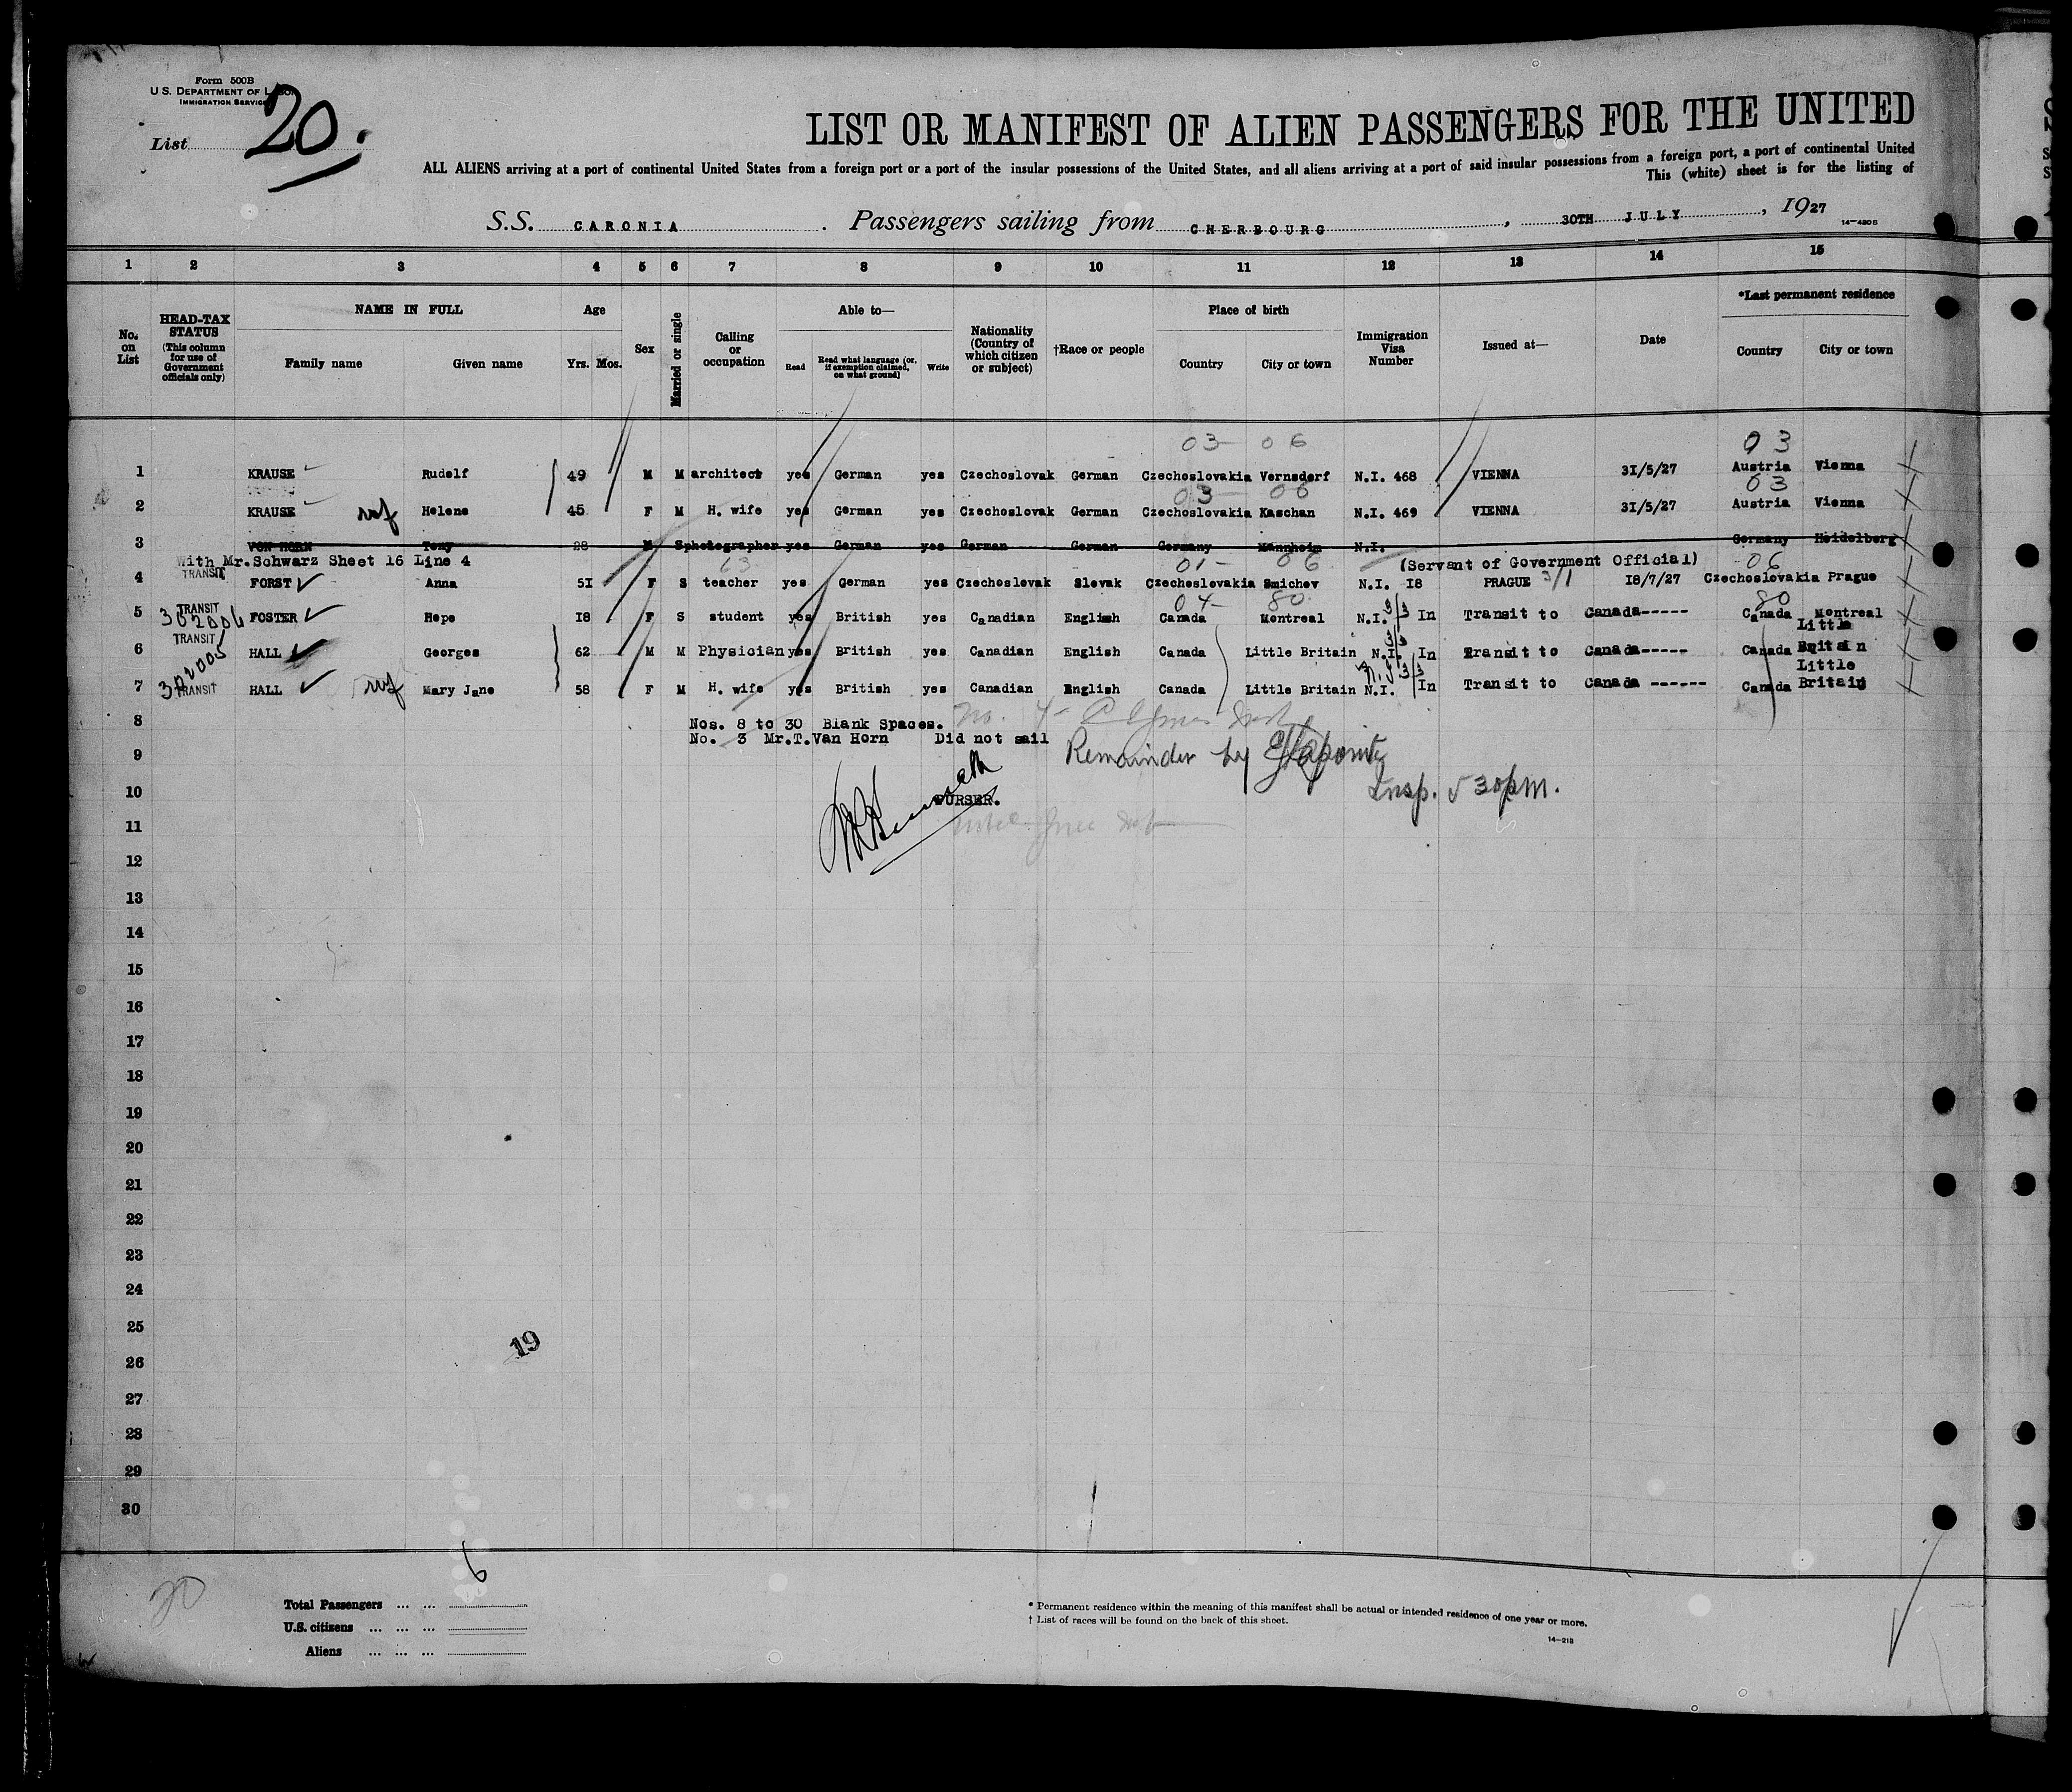 Form 500B
U.S. DEPARTMENT OF LABOR
IMMIGRATION SERVICE
List 20.
LIST OR MANIFEST OF ALIEN PASSENGERS FOR THE UNITED
ALL ALIENS arriving at a port of continental United States from a foreign port or a port of the insular possessions of the United States, and all aliens arriving at a port of said insular possessions from a foreign port, a port of continental United
This (white) sheet is for the listing of
S.S. CARONIA . Passengers sailing from CHERBOURG , 30TH JULY , 1927
14-430B
1 2 3 4 5 6 7 8 9 10 11 12 13 14 15
No. on List
HEAD-TAX STATUS (This column for use of Government officials only)
NAME IN FULL
Family name Given name
Age
Yrs. Mos.
Sex
Married or single
Calling or occupation
Able to—
Read
Read what language (or, if exemption claimed, on what ground)
Write
Nationality (Country of which citizen or subject)
†Race or people
Place of birth
Country City or town
Immigration Visa Number
Issued at—
Date
*Last permanent residence
Country City or town
03 06 03
1 KRAUSE Rudolf 49 M M architect yes German yes Czechoslovak German Czechoslovakia Vernsdorf N.I. 468 VIENNA 3I/5/27 Austria Vienna
03 06 03
2 KRAUSE wf Helene 45 F M H. wife yes German yes Czechoslovak German Czechoslovakia Kaschan N.I. 469 VIENNA 3I/5/27 Austria Vienna
3 VON HORN Tony 28 M S photographer yes German yes German German Germany Mannheim N.I. Germany Heidelberg
With Mr.Schwarz Sheet 16 Line 4 63 01- 06 (Servant of Government Official) 06
4 TRANSIT FORST Anna 5I F S teacher yes German yes Czechoslovak Slovak Czechoslovakia Smichov N.I. I8 PRAGUE 3/1 I8/7/27 Czechoslovakia Prague
04- 80 80
5 TRANSIT 302006 FOSTER Hope I8 F S student yes British yes Canadian English Canada Montreal N.I. 3/3 In Transit to Canada----- Canada Montreal
6 TRANSIT 302005 HALL Georges 62 M M Physician yes British yes Canadian English Canada Little Britain N.I. 3/3 In Transit to Canada----- Canada Little Britain
7 TRANSIT HALL wf Mary Jane 58 F M H. wife yes British yes Canadian English Canada Little Britain N.I. 3/3 In Transit to Canada ------ Canada Little Britain
8 Nos. 8 to 30 Blank Spaces. No. 4-
No. 3 Mr.T.Van Horn Did not sail
9 Remainder by
10 PURSER. Insp. 530pm.
11
12
13
14
15
16
17
18
19
20
21
22
23
24
25
19
26
27
28
29
30
6
20
Total Passengers ... ...
U.S. citizens ... ... ...
Aliens ... ... ...
* Permanent residence within the meaning of this manifest shall be actual or intended residence of one year or more.
† List of races will be found on the back of this sheet.
14-213